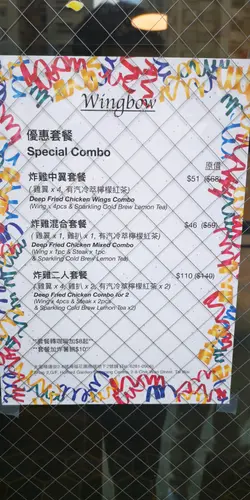 Wingbow
優惠套餐
Special Combo
原價
炸雞中翼套餐 $51 ($68)
( 雞翼 x 4, 有汽冷萃檸檬紅茶)
Deep Fried Chicken Wings Combo
(Wing x 4pcs & Sparkling Cold Brew Lemon Tea)
炸雞混合套餐 $46 ($59)
( 雞翼 x 1, 雞扒 x 1, 有汽冷萃檸檬紅茶)
Deep Fried Chicken Mixed Combo
(Wing x 1pc & Steak x 1pc
& Sparkling Cold Brew Lemon Tea)
炸雞二人套餐 $110 ($140)
( 雞翼 x 4, 雞扒 x 2, 有汽冷萃檸檬紅茶 x 2)
Deep Fried Chicken Combo for 2
(Wing x 4pcs & Steak x 2pcs
& Sparkling Cold Brew Lemon Tea x2)
**套餐轉咖啡加$8起**
**套餐加炸薯條$10**